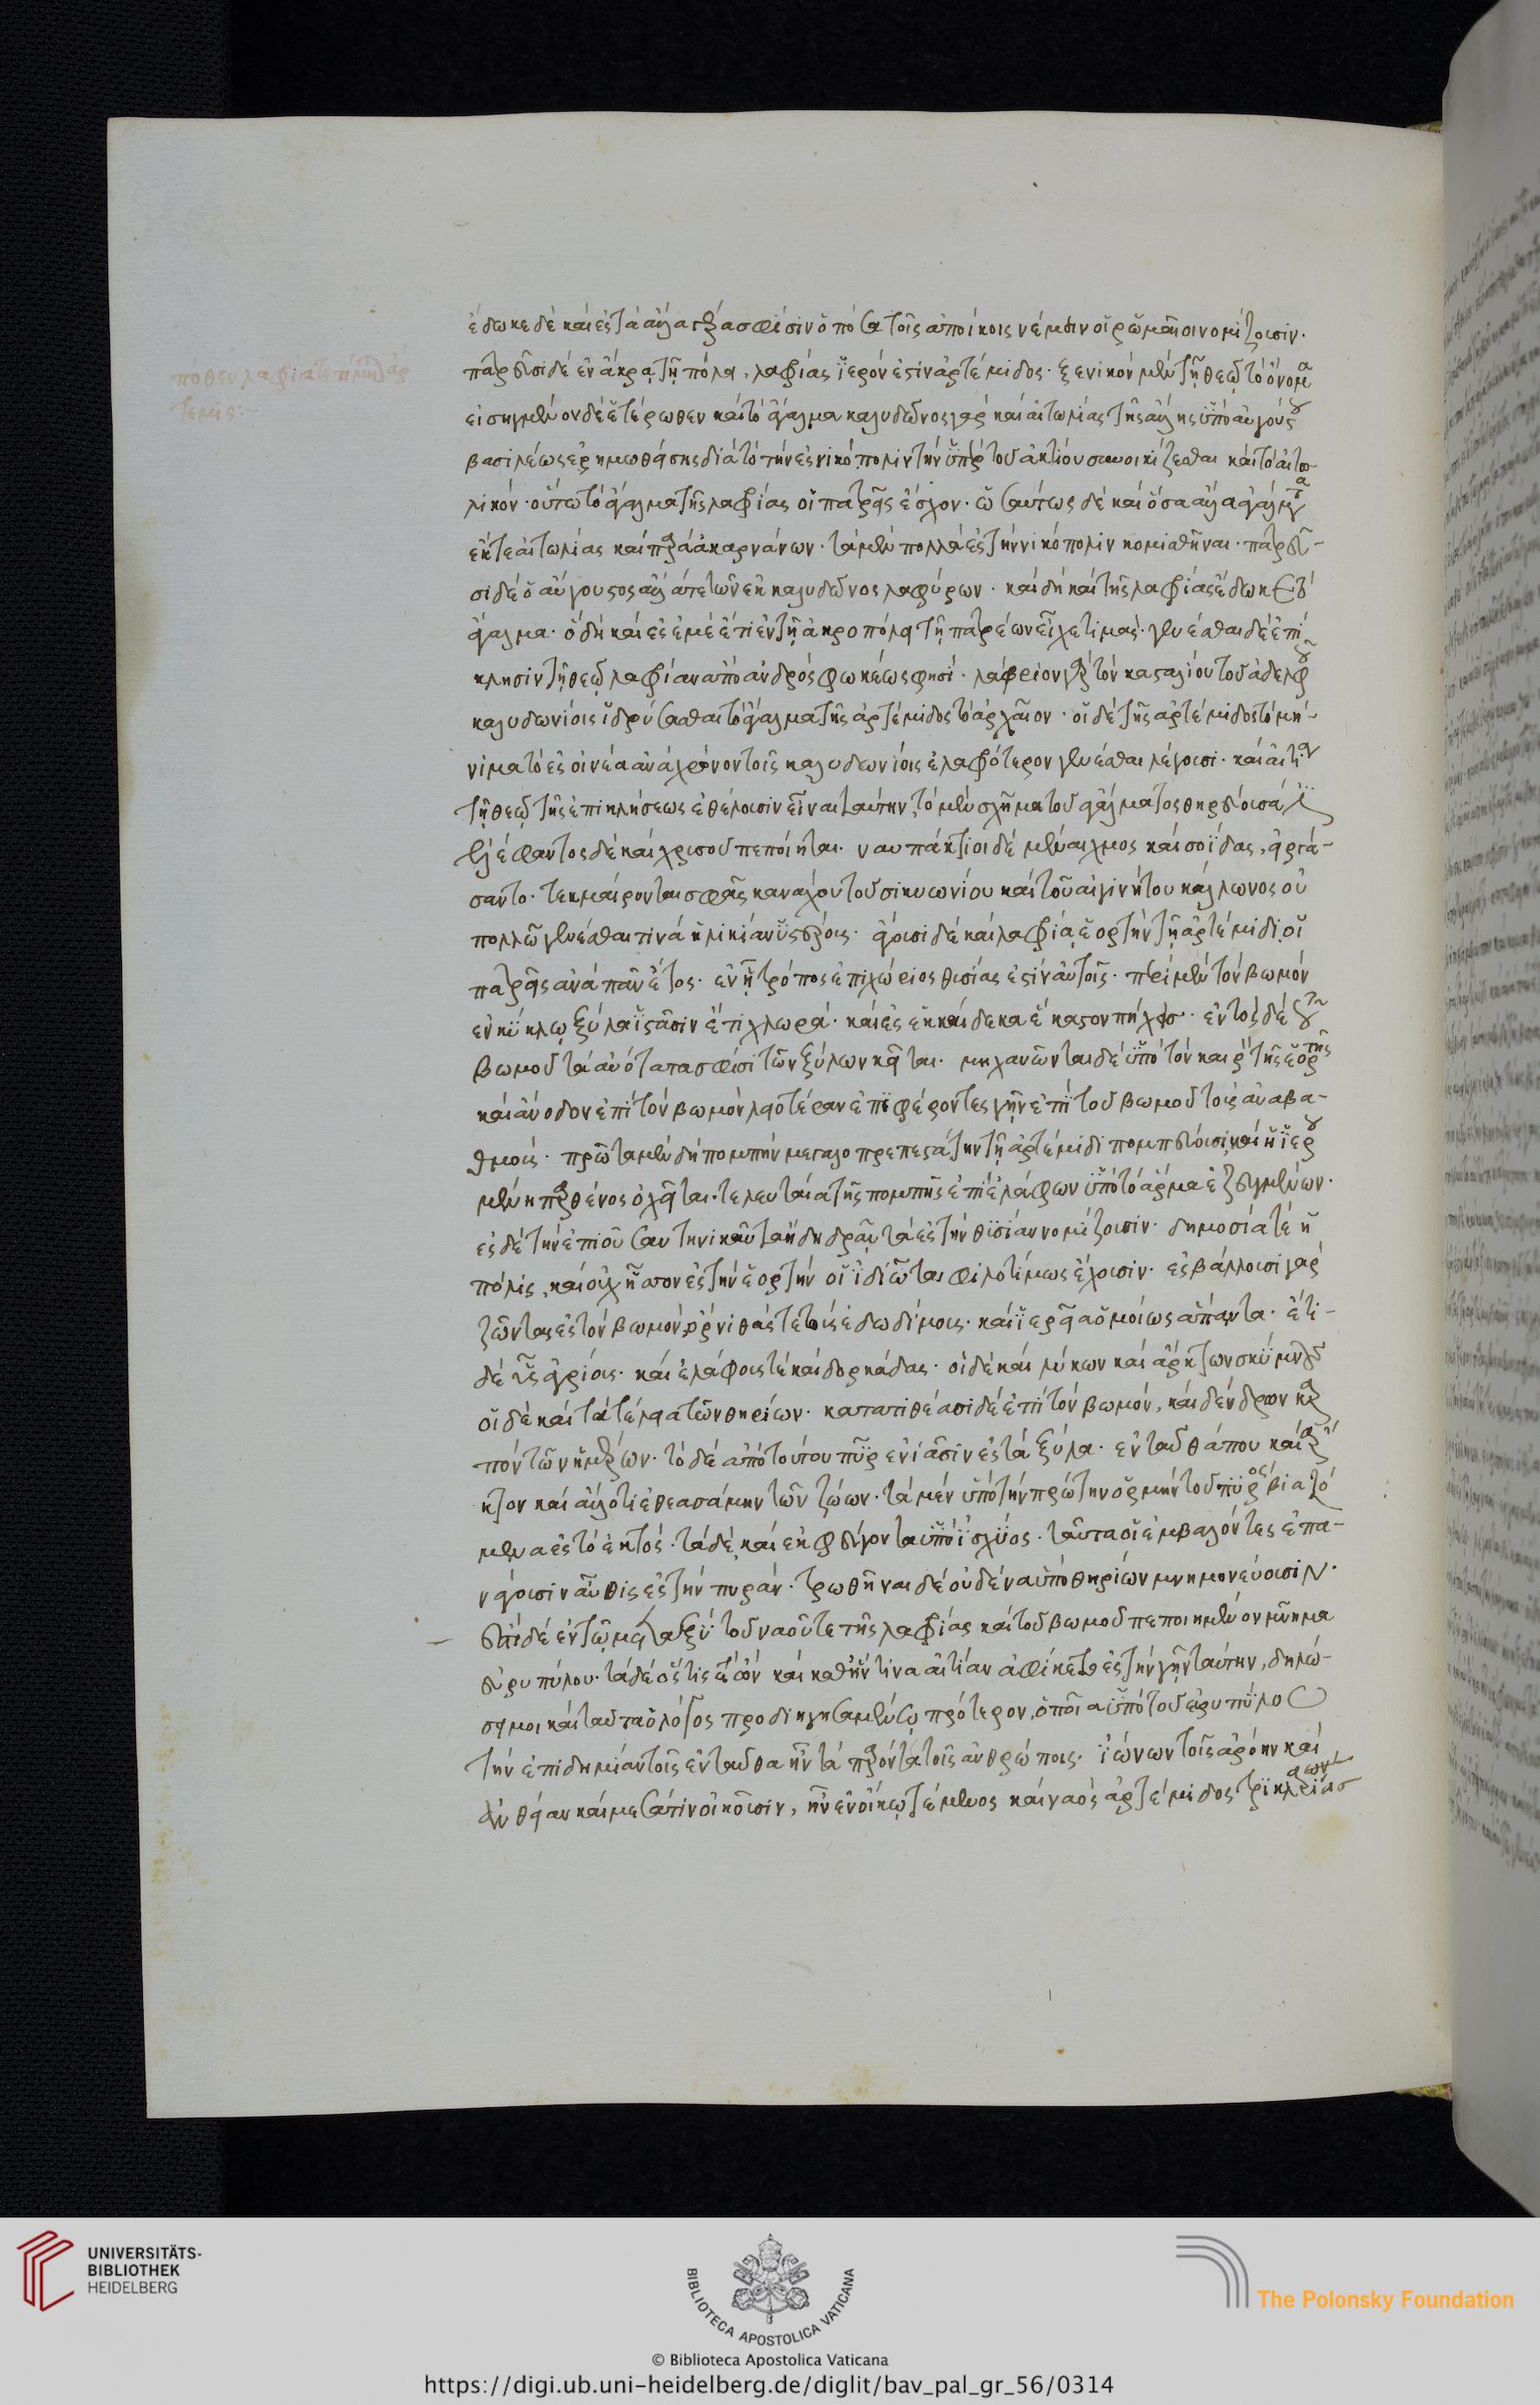 πόθεν λαφρία ἐπίκλην ἄρ
τεμις:-
ἔδωκε δὲ καὶ ἐς τὰ ἄλλα γέρα σφίσιν ὁπόσα τοῖς ἀποίκοις νέμειν οἱ ῥωμαῖοι νομίζουσιν.
πατρεῦσι δὲ ἐν ἄκρα τῇ πόλει, λαφρίας ἱερόν ἐστιν ἀρτέμιδος. ξενικὸν μὲν τῇ θεῷ τὸ ὄνομα
εἰσηγμένον δὲ ἑτέρωθεν καὶ τὸ ἄγαλμα καλυδῶνος γὰρ καὶ αἰτωλίας τῆς ἄλλης ὑπὸ αὐγούστου
βασιλέως ἐρημωθείσης διὰ τὸ τὴν ἐς νικόπολιν τὴν ὑπὲρ τοῦ ἀκτίου συνοικίζεσθαι καὶ τὸ αἰτω-
λικόν. οὕτω τὸ ἄγαλμα τῆς λαφρίας οἱ πατρεῖς ἔσχον. ὡσαύτως δὲ καὶ ὅσα ἄλλα ἀγάλματα
ἔκ τε αἰτωλίας καὶ παρὰ ἀκαρνάνων. τὰ μὲν πολλὰ ἐς τὴν νικόπολιν κομισθῆναι. πατρεῦ-
σι δὲ ὁ αὔγουστος ἄλλα τε τῶν ἐκ καλυδῶνος λαφύρων. καὶ δὴ καὶ τῆς λαφρίας ἔδωκε τὸ
ἄγαλμα. ὃ δὴ καὶ ἐς ἐμὲ ἔτι ἐν τῇ ἀκροπόλει τῇ πατρέων εἶχε τιμάς. γενέσθαι δὲ ἐπί-
κλησιν τῇ θεῷ λαφρίαν ἀπὸ ἀνδρὸς φωκέως φησί. λάφριον γὰρ τὸν κασταλίου τοῦ ἀδελφοῦ
καλυδωνίοις ἱδρύσασθαι τὸ ἄγαλμα τῆς ἀρτέμιδος τὸ ἀρχαῖον. οἱ δὲ τῆς ἀρτέμιδος τὸ μή-
νιμα τὸ ἐς οἰνέα ἀνὰ χρόνον τοῖς καλυδωνίοις ἐλαφρότερον γενέσθαι λέγουσι. καὶ αἰτίαν
τῇ θεῷ τῆς ἐπικλήσεως ἐθέλουσιν εἶναι ταύτην, τὸ μὲν σχῆμα τοῦ ἀγάλματος θηρεύουσά ἐστι
ἐλέφαντος δὲ καὶ χρυσοῦ πεποίηται. ναυπάκτιοι δὲ μέναιχμος καὶ σοΐδας, εἰργά-
σαντο. τεκμαίρονται σφᾶς καναχου τοῦ σικυωνίου καὶ τοῦ αἰγινήτου κάλλωνος οὐ
πολλῷ γενέσθαι τινὰ ἡλικίαν ὑστέρους. ἄγουσι δὲ καὶ λαφρία ἑορτὴν τῇ ἀρτέμιδι οἱ
πατρεῖς ἀνὰ πᾶν ἔτος. ἐν ᾗ τρόπος ἐπιχώριος θυσίας ἐστὶν αὐτοῖς. περὶ μὲν τὸν βωμὸν
ἐν κύκλῳ ξύλα ἱστᾶσιν ἔτι χλωρά. καὶ ἐς ἑκκαίδεκα ἕκαστον πήχεις. ἐντὸς δὲ τοῦ
βωμοῦ τὰ αὐότατα σφίσι τῶν ξύλων κεῖται. μηχανῶνται δὲ ὑπὸ τὸν καιρὸν τῆς ἑορτῆς
καὶ ἄνοδον ἐπὶ τὸν βωμὸν λειοτέραν ἐπιφέροντες γῆν ἐπὶ τοῦ βωμοῦ τοὺς ἀναβα-
θμούς. πρῶτα μὲν δὴ πομπὴν μεγαλοπρεπεστάτην τῇ ἀρτέμιδι πομπεύουσι, καὶ ἡ ἱερου
μένη παρθένος ὀχεῖται. τελευταία τῆς πομπῆς ἐπὶ ἐλάφων ὑπὸ τὸ ἅρμα ἐζευγμένων.
ἐς δὲ τὴν ἐπιοῦσαν τηνικαῦτα ἤδη δρᾶν τὰ ἐς τὴν θυσίαν νομίζουσιν. δημοσίᾳ τε ἡ
πόλις, καὶ οὐχ ἧσσον ἐς τὴν ἑορτὴν οἱ ἰδιῶται φιλοτίμως ἔχουσιν. ἐσβάλλουσι γὰρ
ζῶντας ἐς τὸν βωμόν, ὄρνιθάς τε τοὺς ἐδωδίμους. καὶ ἱερεῖα ὁμοίως ἅπαντα. ἔτι-
δὲ ὗς ἀγρίους. καὶ ἐλάφους τὲ καὶ δορκάδας. οἱ δὲ καὶ λύκων καὶ ἄρκτων σκύμνους
οἱ δὲ καὶ τὰ τέλεια τῶν θηρίων. κατατιθέασι δὲ ἐπὶ τὸν βωμόν, καὶ δένδρων καρ
πὸν τῶν ἡμέρων. τὸ δὲ ἀπὸ τούτου πῦρ ἐνιᾶσιν ἐς τὰ ξύλα. ἐνταῦθά που καὶ ἄρ
κτον καὶ ἄλλο τι ἐθεασάμην τῶν ζώων. τὰ μὲν ὑπὸ τὴν πρώτην ὁρμὴν τοῦ πυρὸς βιαζό
μενα ἐς τὸ ἐκτός. τὰ δὲ, καὶ ἐκφεύγοντα ὑπὸ ἰσχύος. ταῦτα οἱ ἐμβαλόντες ἐπα-
νάγουσιν αὖθις ἐς τὴν πυράν. τρωθῆναι δὲ οὐδένα ὑπὸ θηρίων μνημονεύουσιν.
ἔστι δὲ ἐν τῷ μεταξὺ τοῦ ναοῦ τε τῆς λαφρίας καὶ τοῦ βωμοῦ πεποιημένον μνῆμα
εὐρυπύλου. τὰ δὲ ὅστις τε ὢν καὶ καθ' ἥντινα αἰτίαν ἀφίκετο ἐς τὴν γῆν ταύτην, δηλώ-
σει μοι καὶ ταῦτα ὁ λόγος προδιηγησαμένῳ πρότερον, ὁποῖα ὑπὸ τοῦ εὐρυπύλου
τὴν ἐπιδημίαν τοῖς ἐνταῦθα ἦν τὰ παρόντα τοῖς ἀνθρώποις. ἰώνων τοῖς ἀρόην καὶ
ἄνθειαν καὶ μεσάτιν οἰκοῦσιν, ἦν ἐν οἴκῳ τέμενος καὶ ναὸς ἀρτέμιδος τρικλαρίας
UNIVERSITÄTS-
BIBLIOTHEK
HEIDELBERG
BIBLIOTECA APOSTOLICA VATICANA
The Polonsky Foundation
© Biblioteca Apostolica Vaticana
https://digi.ub.uni-heidelberg.de/diglit/bav_pal_gr_56/0314